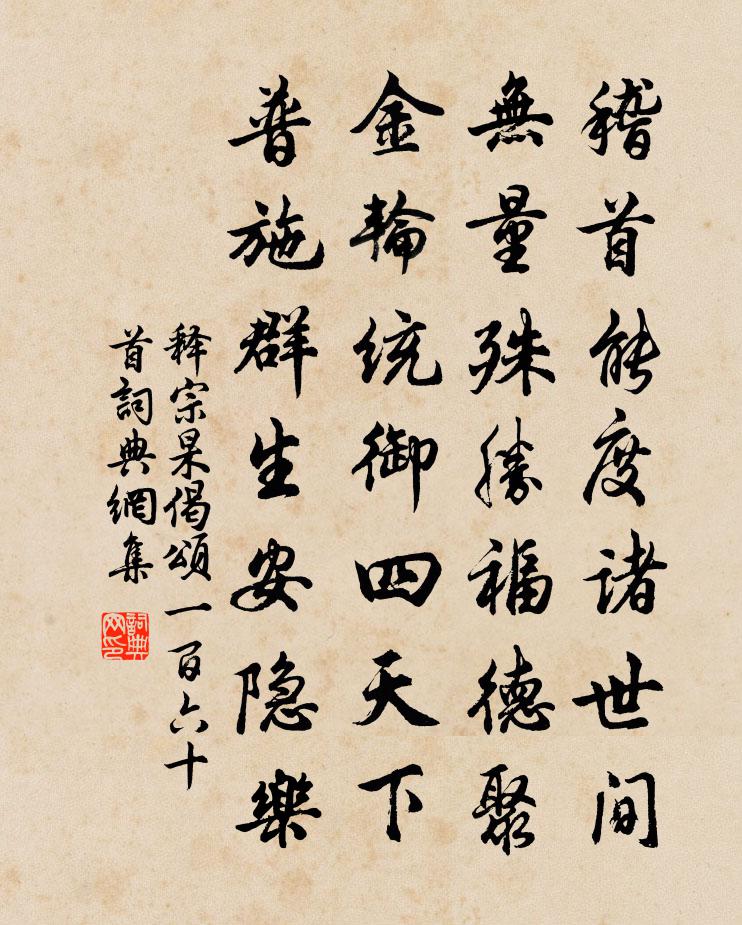 稽首能度诸世间
無量殊勝福德聚
金輪统御四天下
普施群生安隐樂
释宗杲偈頌一百六十
首詞典網集
詞典网印